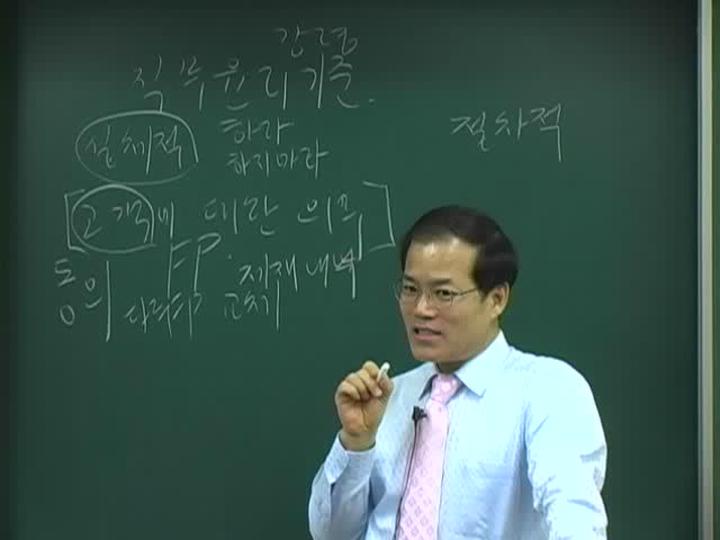 강령
직무윤리기준.
실체적 하라
하지마라
절차적
[고객에 대한 의무]
FP. 제재내역
동의
고치